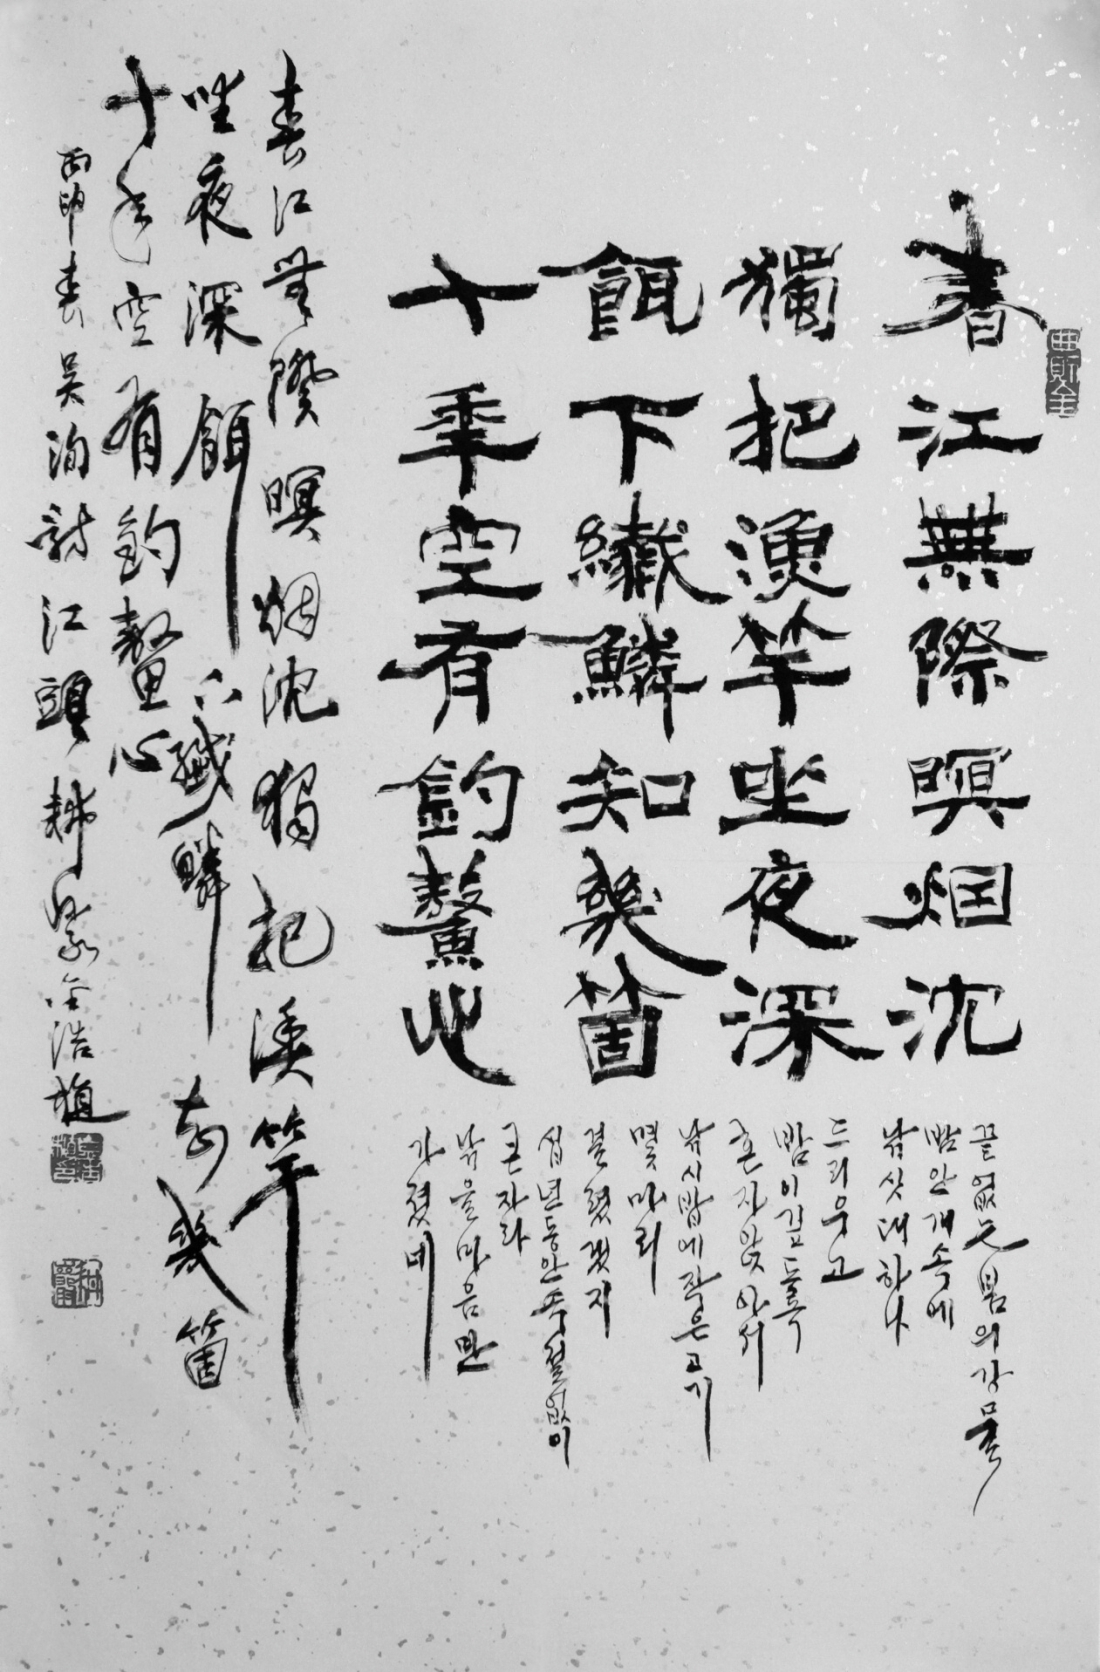 春江無際暝烟沈
獨把漁竿坐夜深
餌下纖鱗知幾箇
十年空有釣鰲心
끝없는 봄의 강물
밤안개 속에
낚싯대 하나
드리우고
밤이 깊도록
혼자 앉아서
낚시밥에 작은 고기
몇 마리
걸렸겠지
십년동안 부질없이
큰 자라
낚을 마음만
가졌네
春江無際暝烟沈獨把漁竿
坐夜深餌下纖鱗知幾箇
十年空有釣鰲心
丙申春 吴洵詩江頭 金浩植